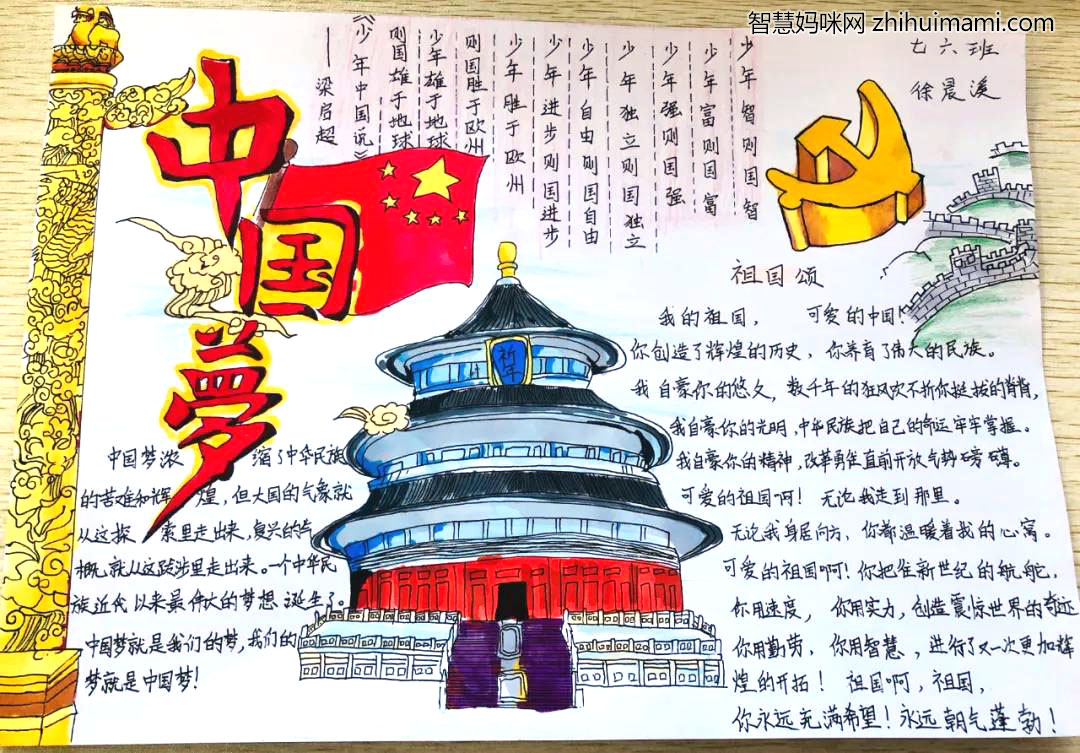 智慧妈咪网 zhihuimami.com
七六班
徐晨溪
中国夢
少年智则国智
少年富则国富
少年强则国强
少年独立则国独立
少年自由则国自由
少年进步则国进步
少年胜于欧州
则国胜于欧州
少年雄于地球
则国雄于地球
《少年中国说》
——梁启超
祈年
中国梦浓缩了中华民族
的苦难和辉煌，但大国的气象就
从这探索里走出来，复兴的气
概就从这跋涉里走出来。一个中华民
族近代以来最伟大的梦想诞生了。
中国梦就是我们的梦，我们的
梦就是中国梦！
祖国颂
我的祖国，可爱的中国！
你创造了辉煌的历史，你养育了伟大的民族。
我自豪你的悠久，数千年的狂风吹不折你挺拔的脊背，
我自豪你的光明，中华民族把自己的命运牢牢掌握。
我自豪你的精神，改革勇往直前开放气势磅礴。
可爱的祖国啊！无论我走到那里。
无论我身居何方，你都温暖着我的心窝。
可爱的祖国啊！你把住新世纪的航舵，
你用速度，你用实力，创造震惊世界的奇迹
你用勤劳，你用智慧，进行了又一次更加辉
煌的开拓！祖国啊，祖国，
你永远充满希望！永远朝气蓬勃！